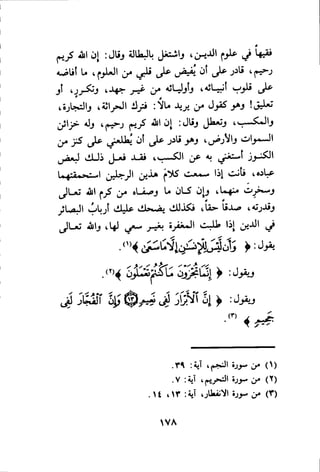 فقيهاً في علوم الدين، واشتغل بالبطالة وقال: إن الله كريم
رحيم، قادر على أن يفيض على قلبي من العلوم، ما أفاضه
على قلوب أنبيائه، وأوليائه من غير جهد، وتكرار، أو
تعليق! وهو كقول من يريد مالاً: فترك الحراثة، والتجارة،
والكسب، وتعطل وقال: إن الله كريم رحيم، وله خزائن
السموات والأرض، وهو قادر على أن يطلعني على كنز من
الكنوز أستغني به عن الكسب، فقد فعل ذلك لبعض
عباده، فأنت إذا سمعت كلام هذين الرجلين استحمقتهما
وسخرت منهما، وإن كان ما وصفاه من كرم الله تعالى
وقدرته، صدقاً حقاً، فكذلك يضحك عليك أرباب البصائر
في الدين إذا طلبت المغفرة بغير سعي لها، والله تعالى
يقول: ﴿ وأن ليس للإنسان إلا ما سعى ﴾ (١).
ويقول: ﴿ إنما تجزون ما كنتم تعملون ﴾ (٢).
ويقول: ﴿ إن الأبرار لفي نعيم (١٣) وإن الفجار لفي
جحيم ﴾ (٣).
(١) من سورة النجم، آية: ٣٩.
(٢) من سورة التحريم، آية: ٧.
(٣) من سورة الانفطار، آية: ١٣، ١٤.
١٧٨